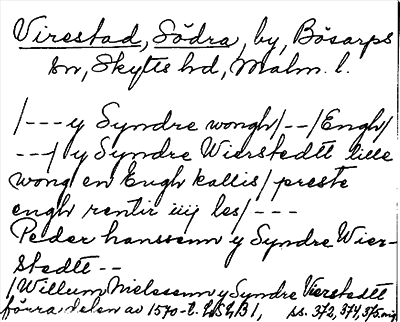 Virestad, Södra, by, Bösarps
sn, Skytts hd, Malm. l.
/--- y Syndre wongh/--/Engh/
---/ y Syndre Wierstedtt lille
wong en Engh kallis/ preste
engh rentir iiij les/---
Peder hanssenn y Syndre Wier-
stedtt--
/Willum Nielssenn y Syndre Vierstedtt
förra delen av 1570-t. 
ss. 372, 374, 375